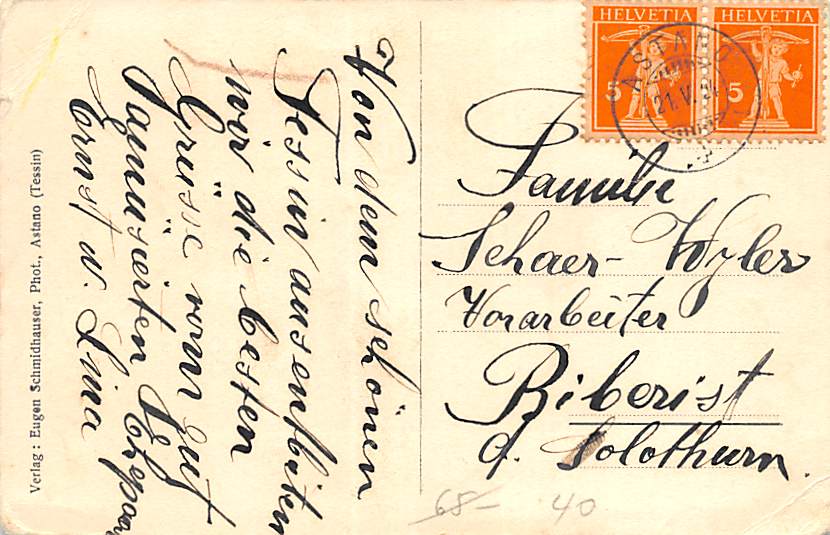 HELVETIA HELVETIA
5 5
ASTANO
21.V.24
Von dem schönen
Tessin ausentbiten
wir die besten
Grüsse vom gut
amüsierten
Ernst u. Lina
Familie
Schaer-Wyler
Vorarbeiter
Biberist
Solothurn.
Verlag: Eugen Schmidhauser, Phot., Astano (Tessin)
68- 40